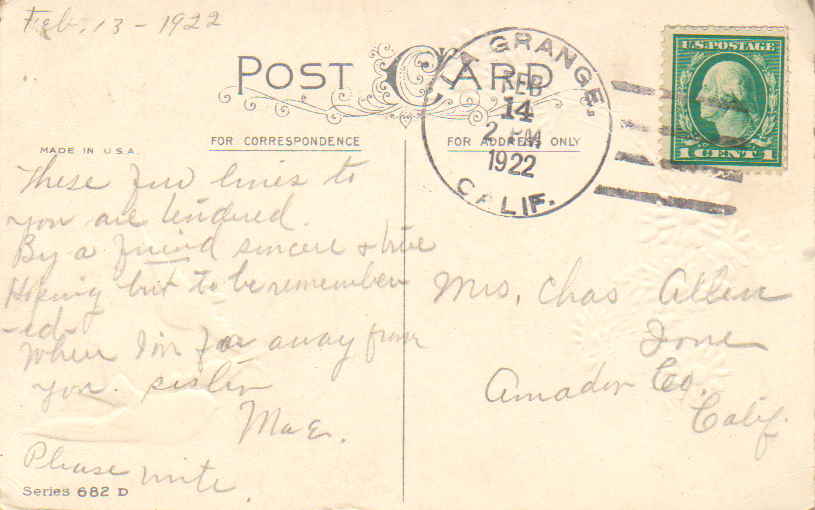 Feb. 13 - 1922
POST CARD
LA GRANGE,
FEB
14
2 PM
1922
CALIF.
U.S. POSTAGE
1 CENT 1
MADE IN U.S.A.
FOR CORRESPONDENCE
FOR ADDRESS ONLY
These few lines to
you are tendered.
By a friend sincere & true
Hoping but to be remember
-ed-
When I'm far away from
you. sister
Mae.
Please write.
Series 682 D
Mrs. Chas Allen
Ione
Amador Co.
Calif.